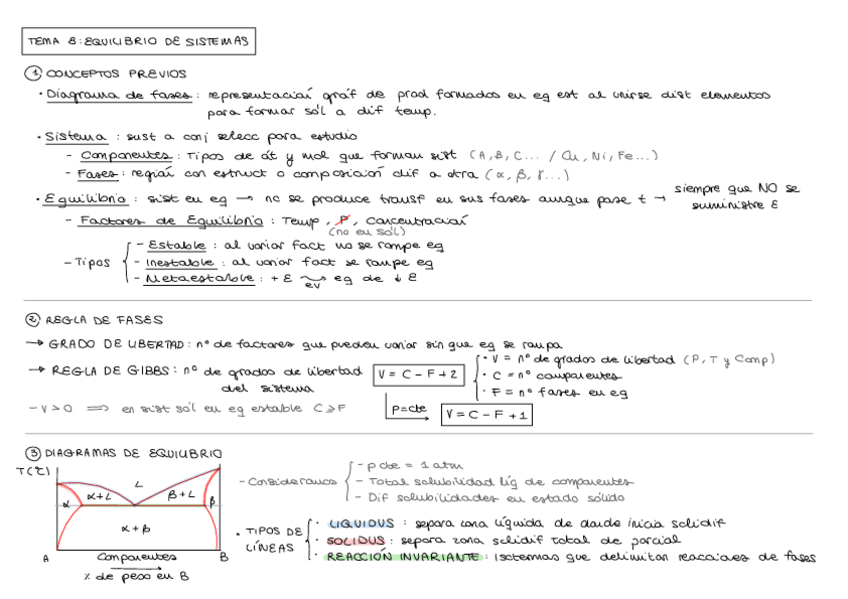 TEMA 8: EQUILIBRIO DE SISTEMAS
1) CONCEPTOS PREVIOS
· Diagrama de fases: representación gráf de prod formados en eq est al unirse dist elementos
para formar sól a dif temp.
· Sistema: sust a conj selecc para estudio
- Componentes: Tipos de át y mol que forman sist (A, B, C... / Cu, Ni, Fe...)
- Fases: región con estruct o composición dif a otra (α, β, γ...)
· Equilibrio: sist en eq → no se produce transf en sus fases aunque pase t → siempre que NO se
suministre E
- Factores de Equilibrio: Temp, P, Concentración
(no en sól)
- Tipos
- Estable: al variar fact no se rompe eq
- Inestable: al variar fact se rompe eq
- Metaestable: + E eq de ↓ E
ev
2) REGLA DE FASES
→ GRADO DE LIBERTAD: nº de factores que pueden variar sin que eq se rompa
→ REGLA DE GIBBS: nº de grados de libertad
del sistema
V = C - F + 2
· V = nº de grados de libertad (P, T y Comp)
· C = nº componentes
· F = nº fases en eq
- V > 0 ⟹ en sist sól en eq estable C ⩾ F
P=cte
V = C - F + 1
3) DIAGRAMAS DE EQUILIBRIO
T(ºC)
L
α
α+L
β+L
β
α+β
A
Componentes
B
% de peso en B
- Consideramos
- p cte = 1 atm
- Total solubilidad líq de componentes
- Dif solubilidades en estado sólido
· TIPOS DE
LÍNEAS
· LIQUIDUS: separa zona líquida de donde inicia solidif
· SOLIDUS: separa zona solidif total de parcial
· REACCIÓN INVARIANTE: Isotermas que delimitan reacciones de fases